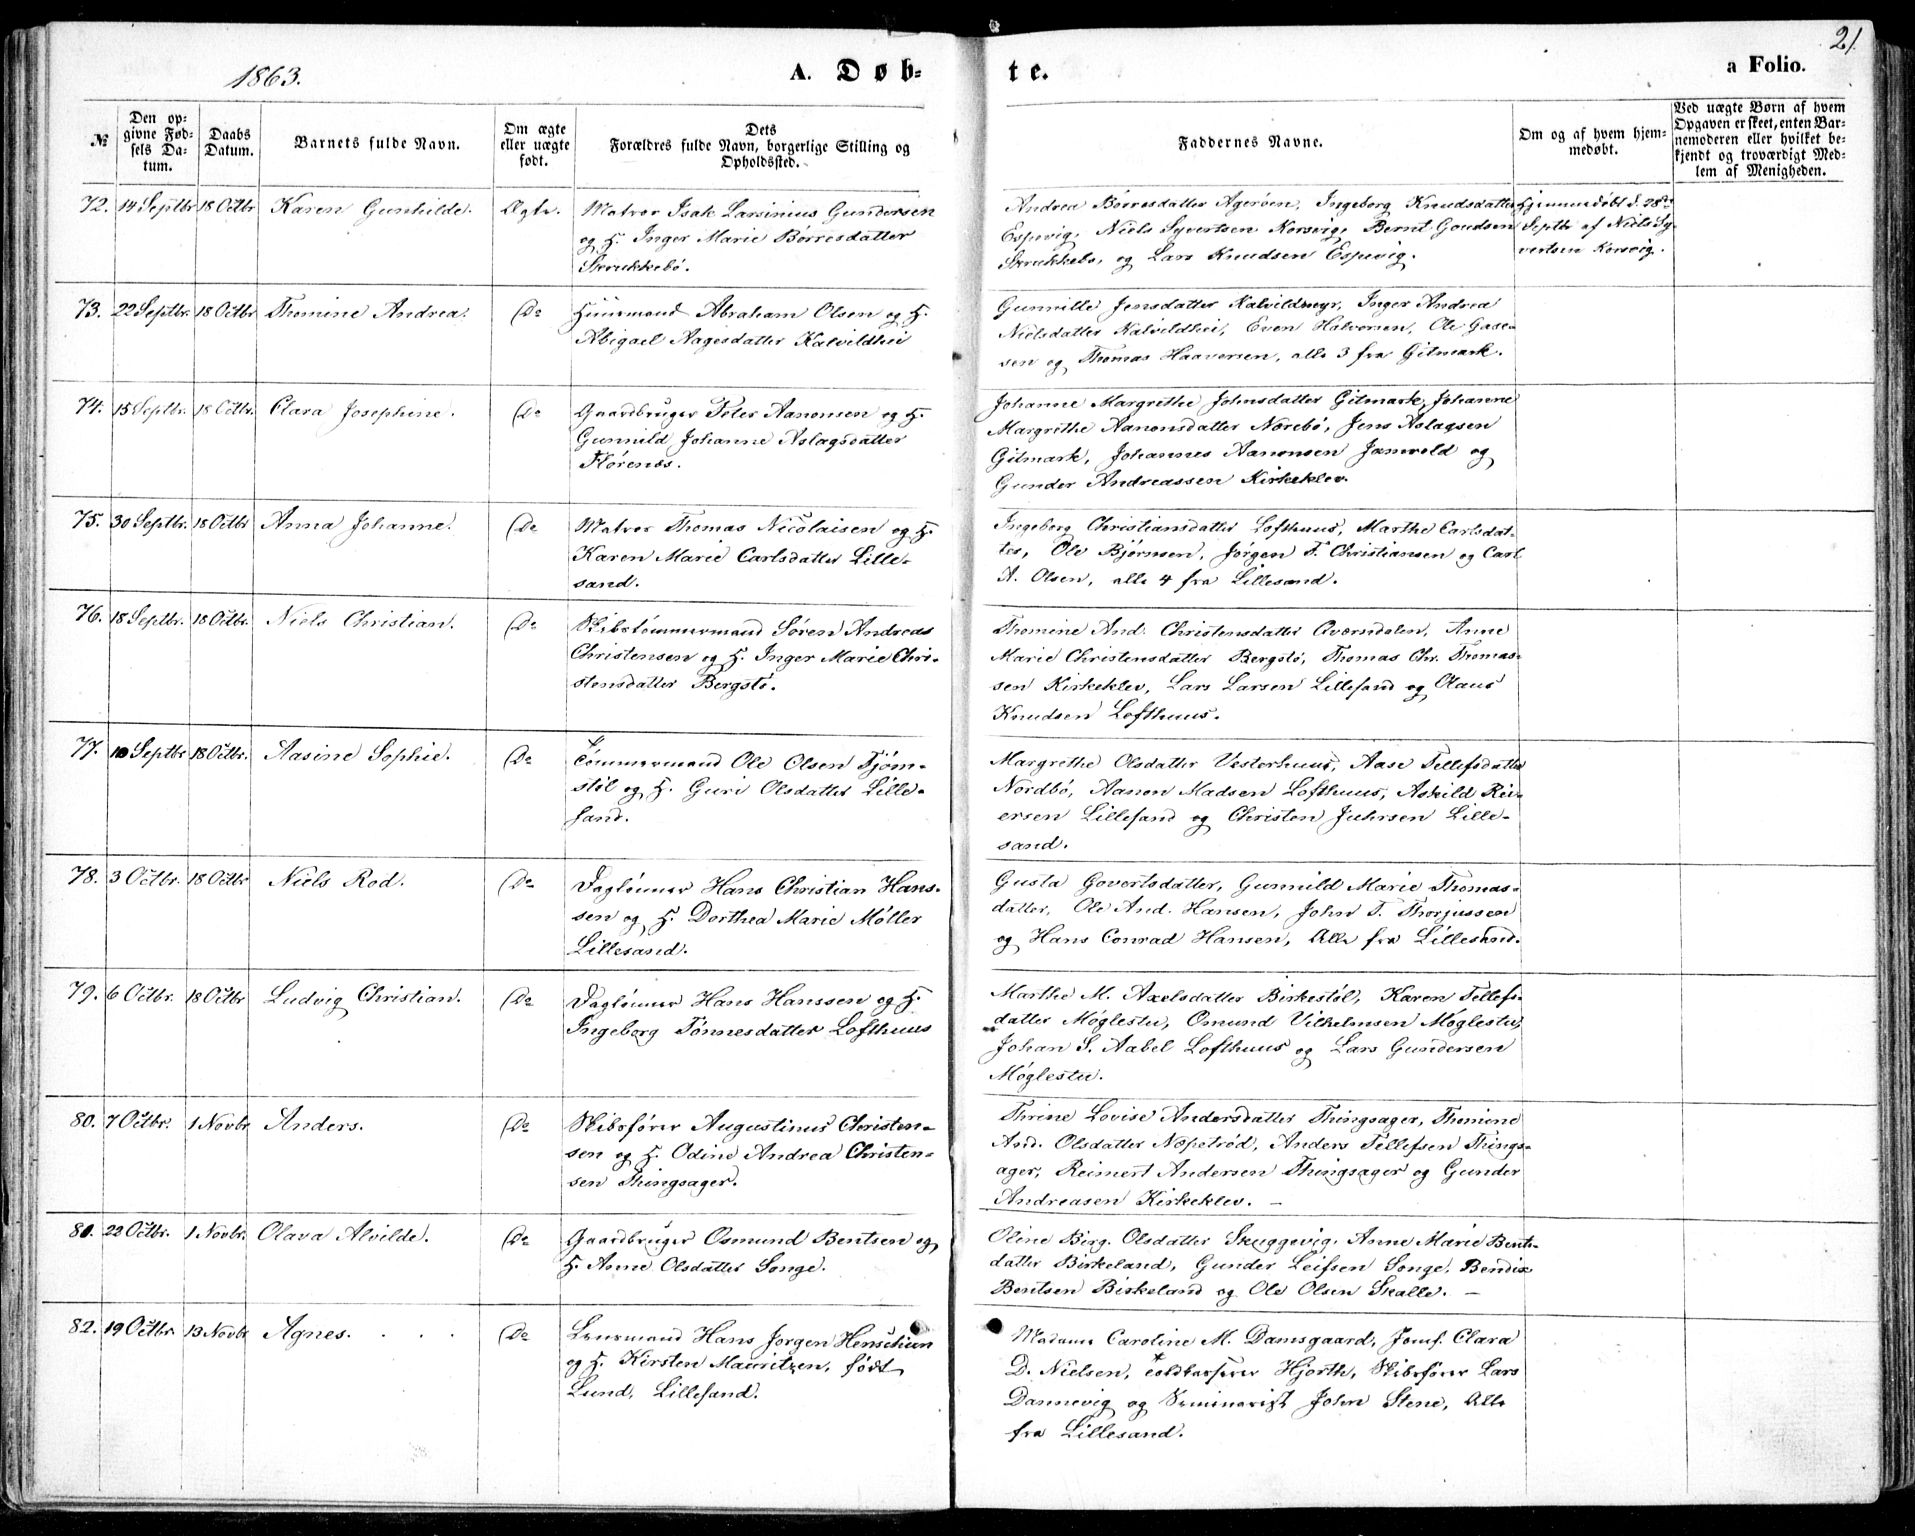 21
1863.
A. Døb-
te.
a Folio.
№
Den op-
givne Fød-
sels Da-
tum.
Daabs
Datum.
Barnets fulde Navn.
Om ægte
eller uægte
født.
Dets
Forældres fulde Navn, borgerlige Stilling og
Opholdssted.
Faddernes Navne.
Om og af hvem hjem-
medøbt.
Ved uægte Børn af hvem
Opgaven er skeet, enten Bar-
nemoderen eller hvilket be-
kjendt og troværdigt Med-
lem af Menigheden.
72. 14 Septbr 18 Octbr Karen Gunhilde. Ægte.
Matros Isak Larsinius Gundersen
og H. Inger Marie Børresdatter
Skrukkebø.
Andrea Børresdatter Agerøen, Ingeborg Knudsdatter
Espevig, Niels Syvertsen Korsvig, Bernt Goudsen
Skrukkebø, og Lars Knudsen Espevig.
Hjemmedøbt d. 28de
Septbr af Niels Sy-
vertsen Korsvig.
73. 22 Septbr. 18 Octbr Thomine Andrea. Do
Huusmand Abraham Olsen og H.
Abigael Aagesdatter Kalvildhei
Gunnille Jensdatter Kalvildmyr, Inger Andrea
Nielsdatter Kalvildhei, Even Halvorsen, Ole Gase-
sen og Thomas Haaversen, alle 3 fra Gitmark.
74. 15 Septbr. 18 Octbr. Clara Josephine. Do
Gaardbruger Peter Aanonsen og H.
Gunnild Johanne Aslagsdatter
Flørenæs.
Johanne Margrethe Johnsdatter Gitmark, Johanne
Margrethe Aanonsdatter Nørebø, Jens Aslagsen
Gitmark, Johannes Aanonsen Jamvold og
Gunder Andreassen Kirkeklev.
75. 30 Septbr. 18 Octbr Anna Johanne. Do
Matros Thomas Nicolaisen og H.
Karen Marie Carlsdatter Lille-
sand.
Ingeborg Christiansdatter Lofthuus, Marthe Carlsdat-
ter, Ole Bjørnsen, Jørgen F. Christiansen og Carl
A. Olsen, alle 4 fra Lillesand.
76. 18 Septbr. 18 Octbr. Niels Christian. Do
Skibstømmermand Søren Andreas
Christensen og H. Inger Marie Chri-
stensdatter Bergstø.
Thomine And. Christensdatter Qværndalen, Anne
Marie Christensdatter Bergstø, Thomas Chr. Thomas-
sen Kirkeklev, Lars Larsen Lillesand og Olaus
Knudsen Lofthuus.
77. 10 Septbr 18 Octbr. Aasine Sophie. Do
Tømmermand Ole Olsen Tjøm-
støl og H. Guri Olsdatter Lille-
sand.
Margrethe Olsdatter Vesterhuus, Aase Tellefsdatter
Nordbø, Aanon Madsen Lofthuus, Askild Rei-
ersen Lillesand og Christen Juhrsen Lille-
sand.
78. 3 Octbr. 18 Octbr Niels Rod. Do
Dagløner Hans Christian Hans-
sen og H. Dorthea Marie Møller
Lillesand.
Gusta Govertsdatter, Gunnild Marie Thomas-
datter, Ole And. Hansen, John T. Thorjussen
og Hans Conrad Hansen, Alle fra Lillesand.
79. 6 Octbr. 18 Octbr Ludvig Christian. Do
Dagløner Hans Hanssen og H.
Ingeborg Tønnesdatter Lofthuus
Marthe M. Axelsdatter Birkestøl, Karen Tellefs-
datter Møglestu, Omund Vilhelmsen Møglestu,
Johan S. Aabel Lofthuus og Lars Gundersen
Møglestu.
80. 7 Octbr. 1 Novbr Anders. Do
Skibsfører Augustinus Christen-
sen og H. Odine Andrea Christen-
sen Thingsager.
Thrine Lovise Andersdatter Thingsager, Thomine
And. Olsdatter Næpetrød, Anders Tellefsen Things-
ager, Reinert Andersen Thingsager og Gunder
Andreasen Kirkeklev. —
81. 22 Octbr. 1 Novbr. Olava Alvilde. Do
Gaardbruger Osmund Bentsen og
H. Anne Olsdatter Songe.
Oline Birg. Olsdatter Skuggevig, Anne Marie Bents-
datter Birkeland, Gunder Leifsen Songe, Bendix
Bentsen Birkeland og Ole Olsen Skalle. —
82. 19 Octbr 13 Novbr Agnes. . . . Do
Lensmand Hans Jørgen Henschien
og H. Kirsten Mauritzen, født
Lund, Lillesand.
Madame Caroline M. Damsgaard, Jomf. Clara
D. Nielsen, Toldkasserer Hjorth, Skibsfører Lars
Dannevig og Seminarist John Stene, Alle
fra Lillesand.